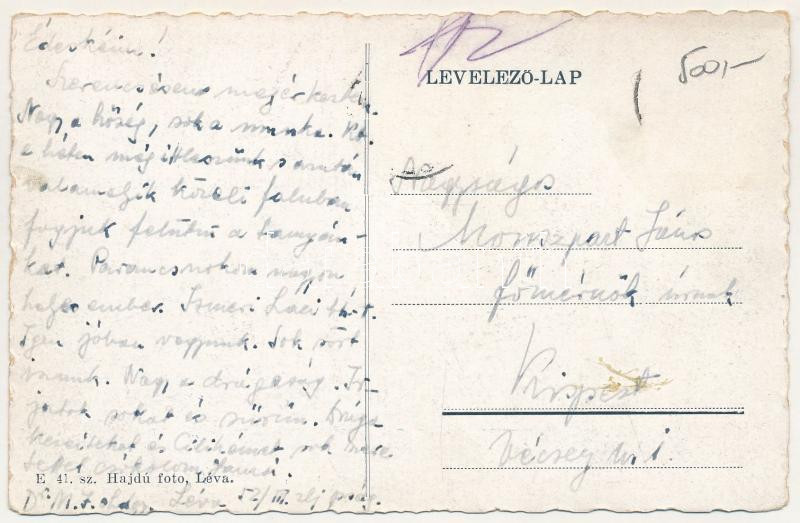 Édeskéim!
Szerencsésen megérkeztem.
Nagy a hőség, sok a munka.
a héten még itt leszünk s aztán
valamelyik közeli faluban
fogjuk felütni a tanyán-
kat. Parancsnokom nagyon
helyes ember. Ismeri Laci
Igen jóban vagyunk. Sok sört
iszunk. Nagy a drágaság. Ír-
jatok sokat és sűrűn. Drága
és Cilikémet sok
csókolom
E 41. sz. Hajdú foto, Léva.
Léva
LEVELEZŐ-LAP
500,-
Nagyságos
János
főmérnök úrnak
Kispest
Vécsey u. 1.